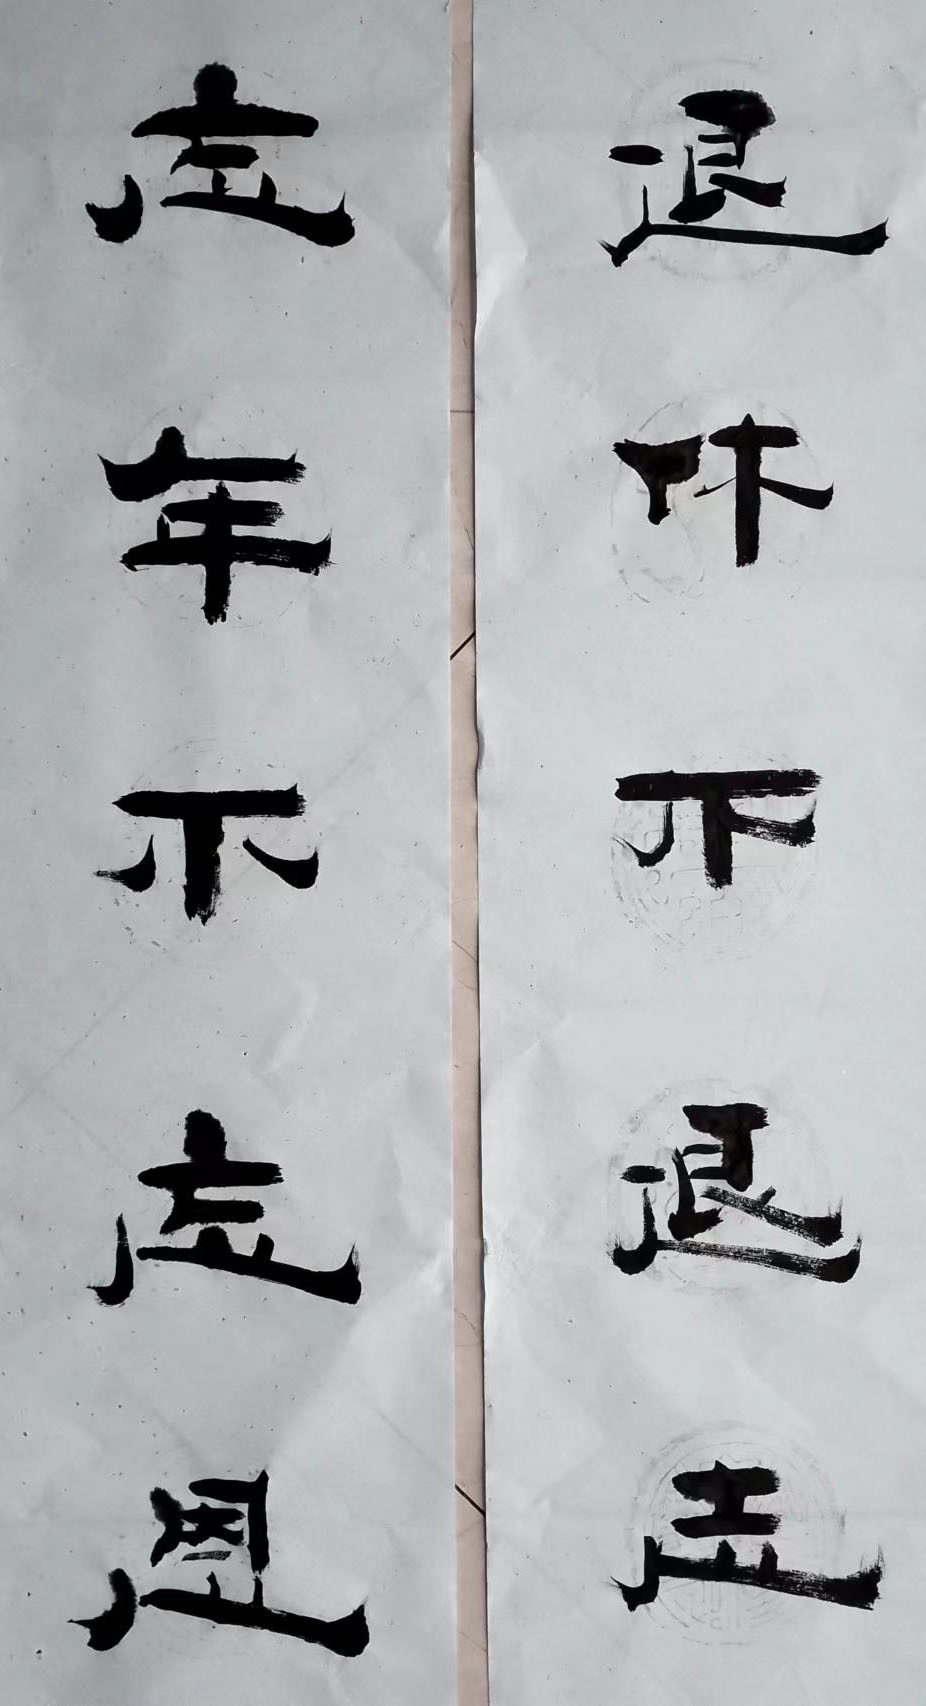 退休不退志
忘年不忘恩